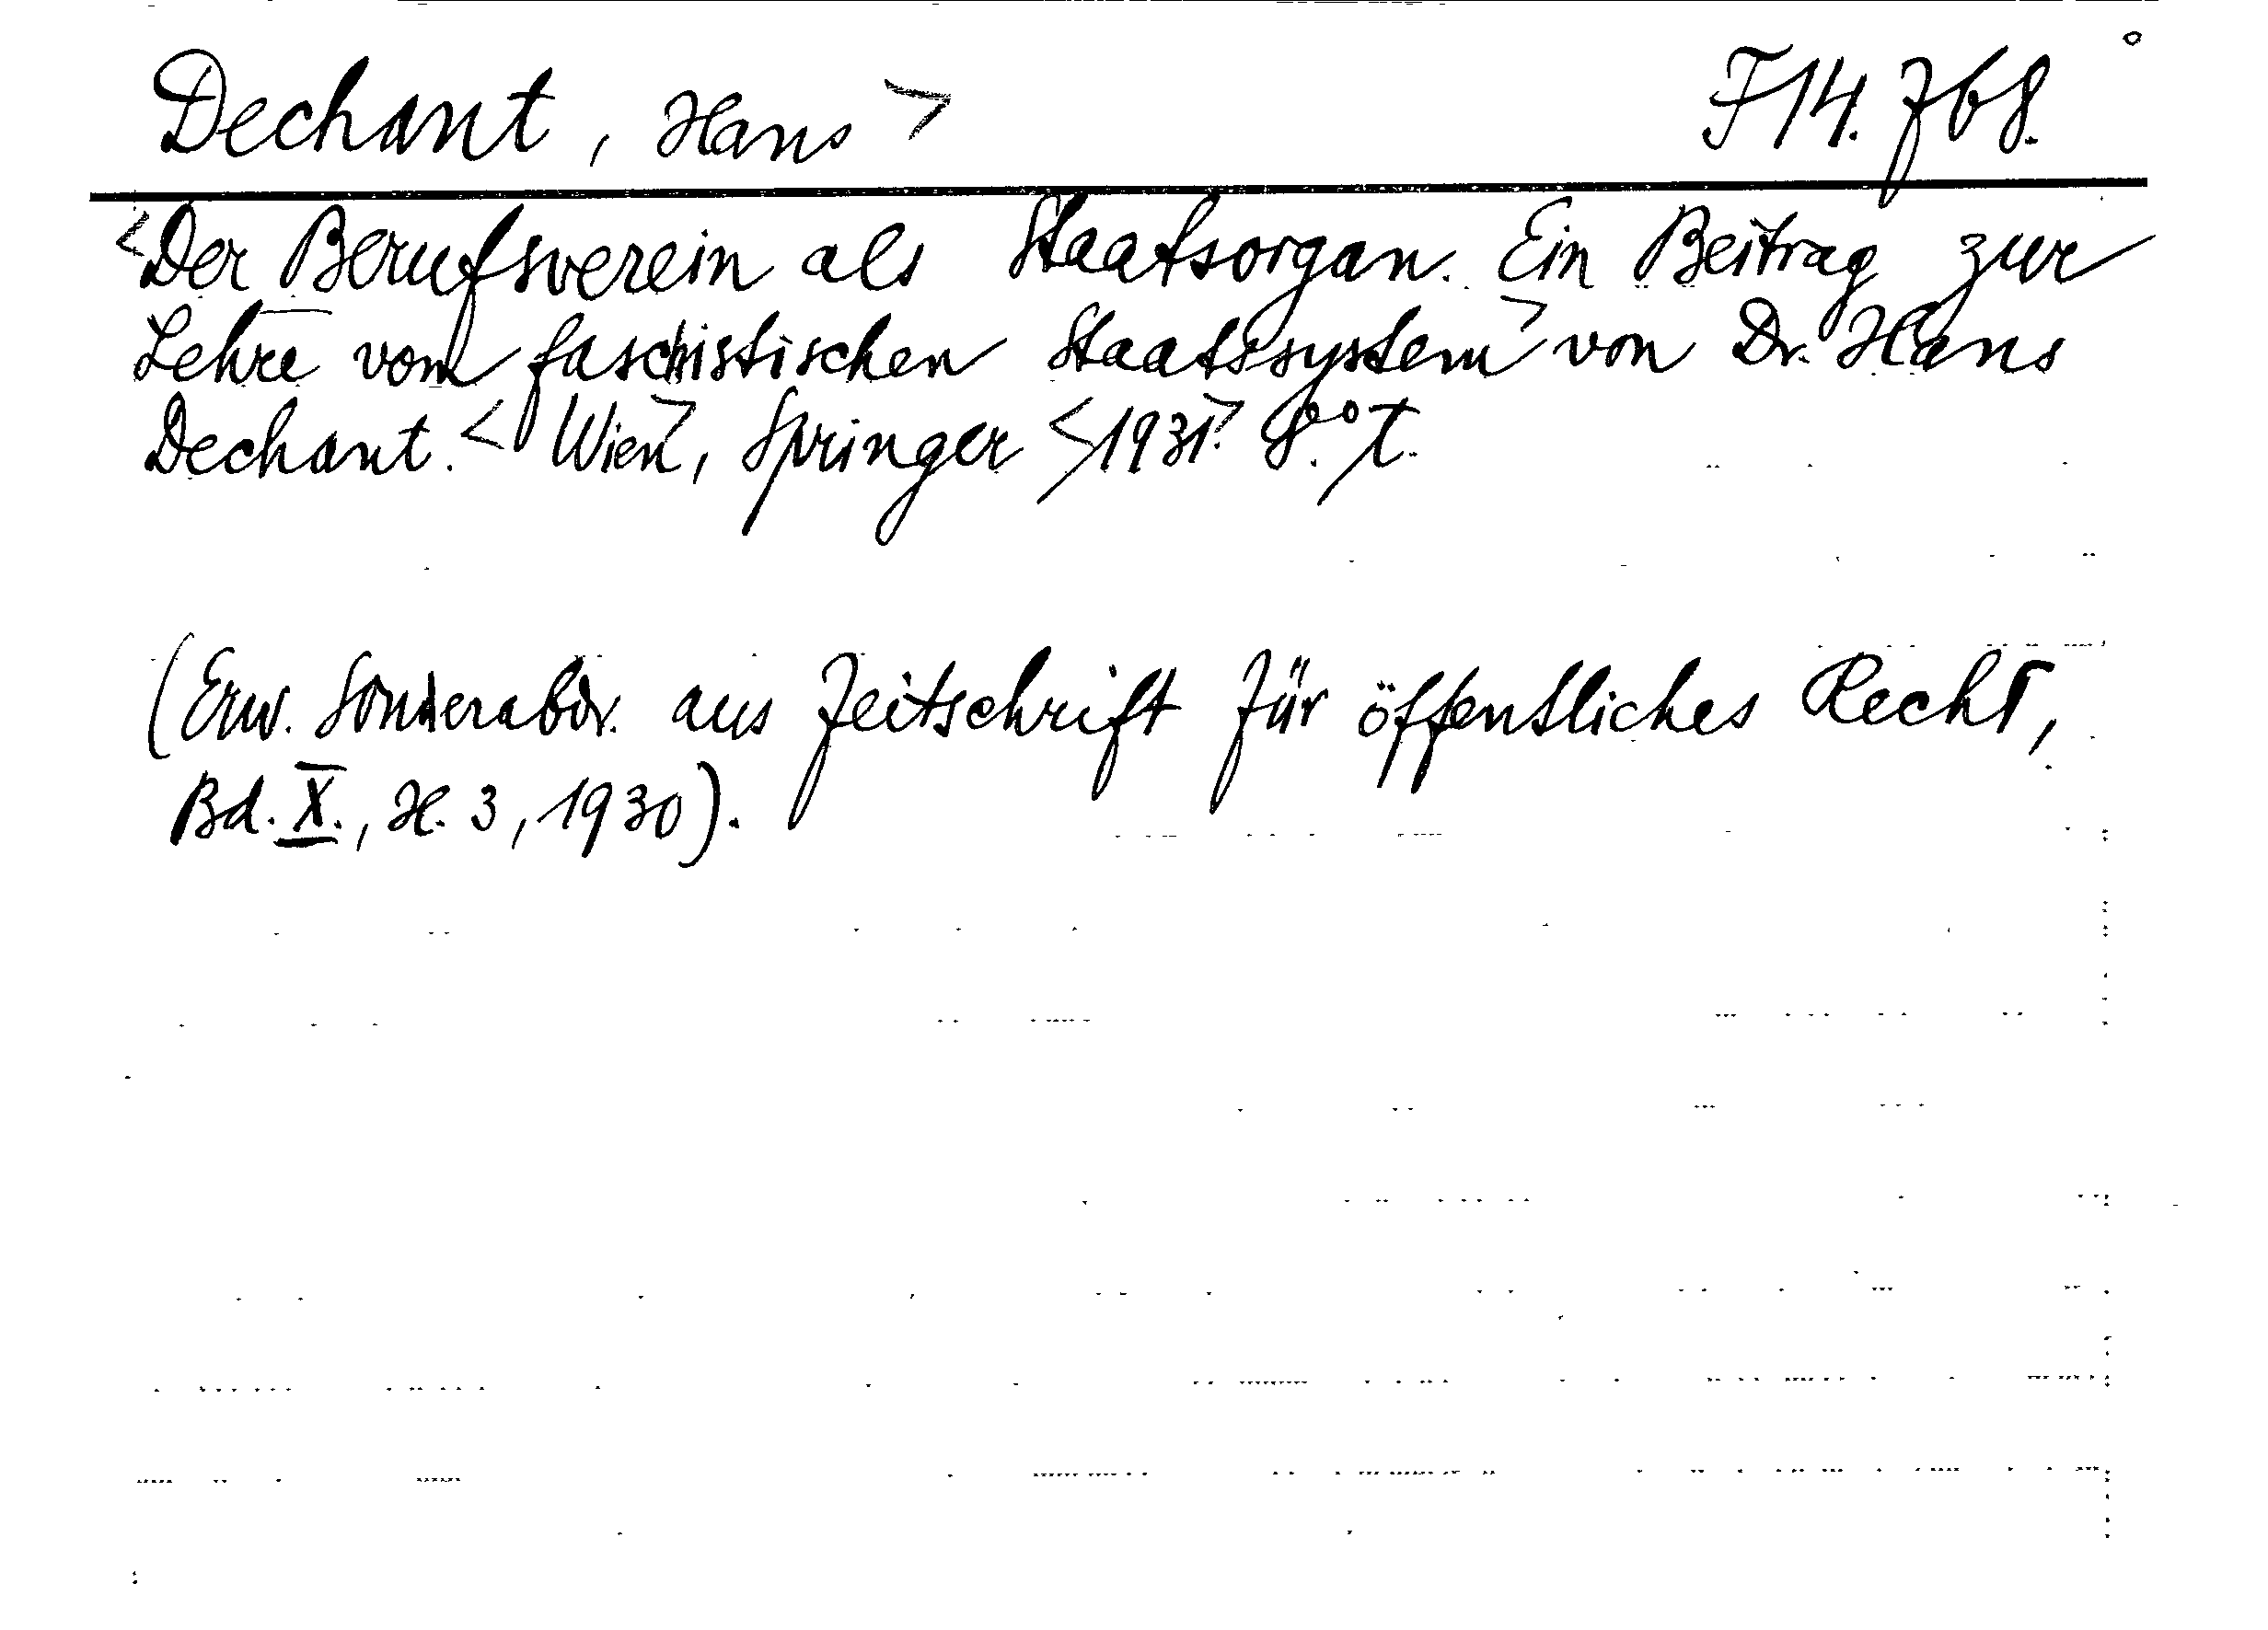 Dechant, Hans > F14.768.
<Der Berufsverein als Staatsorgan. Ein Beitrag zur
Lehre vom faschistischen Staatssystem> von Dr. Hans
Dechant. <Wien>, Springer <1931>. 8.° T.
(Erw. Sonderabdr. aus Zeitschrift für öffentliches Recht,
Bd. X., H. 3, 1930).